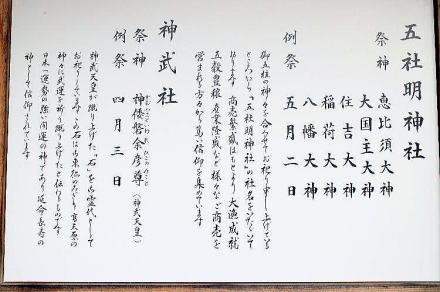 五社明神社
祭神 恵比須大神
大国主大神
住吉大神
稲荷大神
八幡大神
例祭 五月二日
御五柱の神々を合わせてお祀り申し上げている
ところから、「五社明神社」の社名をいただいて
おります 商売繁盛はもとより大漁成就
五穀豊穣 産業隆盛など様々なご商売を
営まれる方々から篤い信仰を集めています
神武社
祭神 神倭磐余彦尊(神武天皇)
かむやまといわれひこのみこと
例祭 四月三日
神武天皇が蹴り上げた「石」を御霊代として
お祀りしています この石は
神々に武運を祈り蹴り上げたと伝わるものです
日本一運勢の強い開運の神であり延命長寿の
神として信仰されています